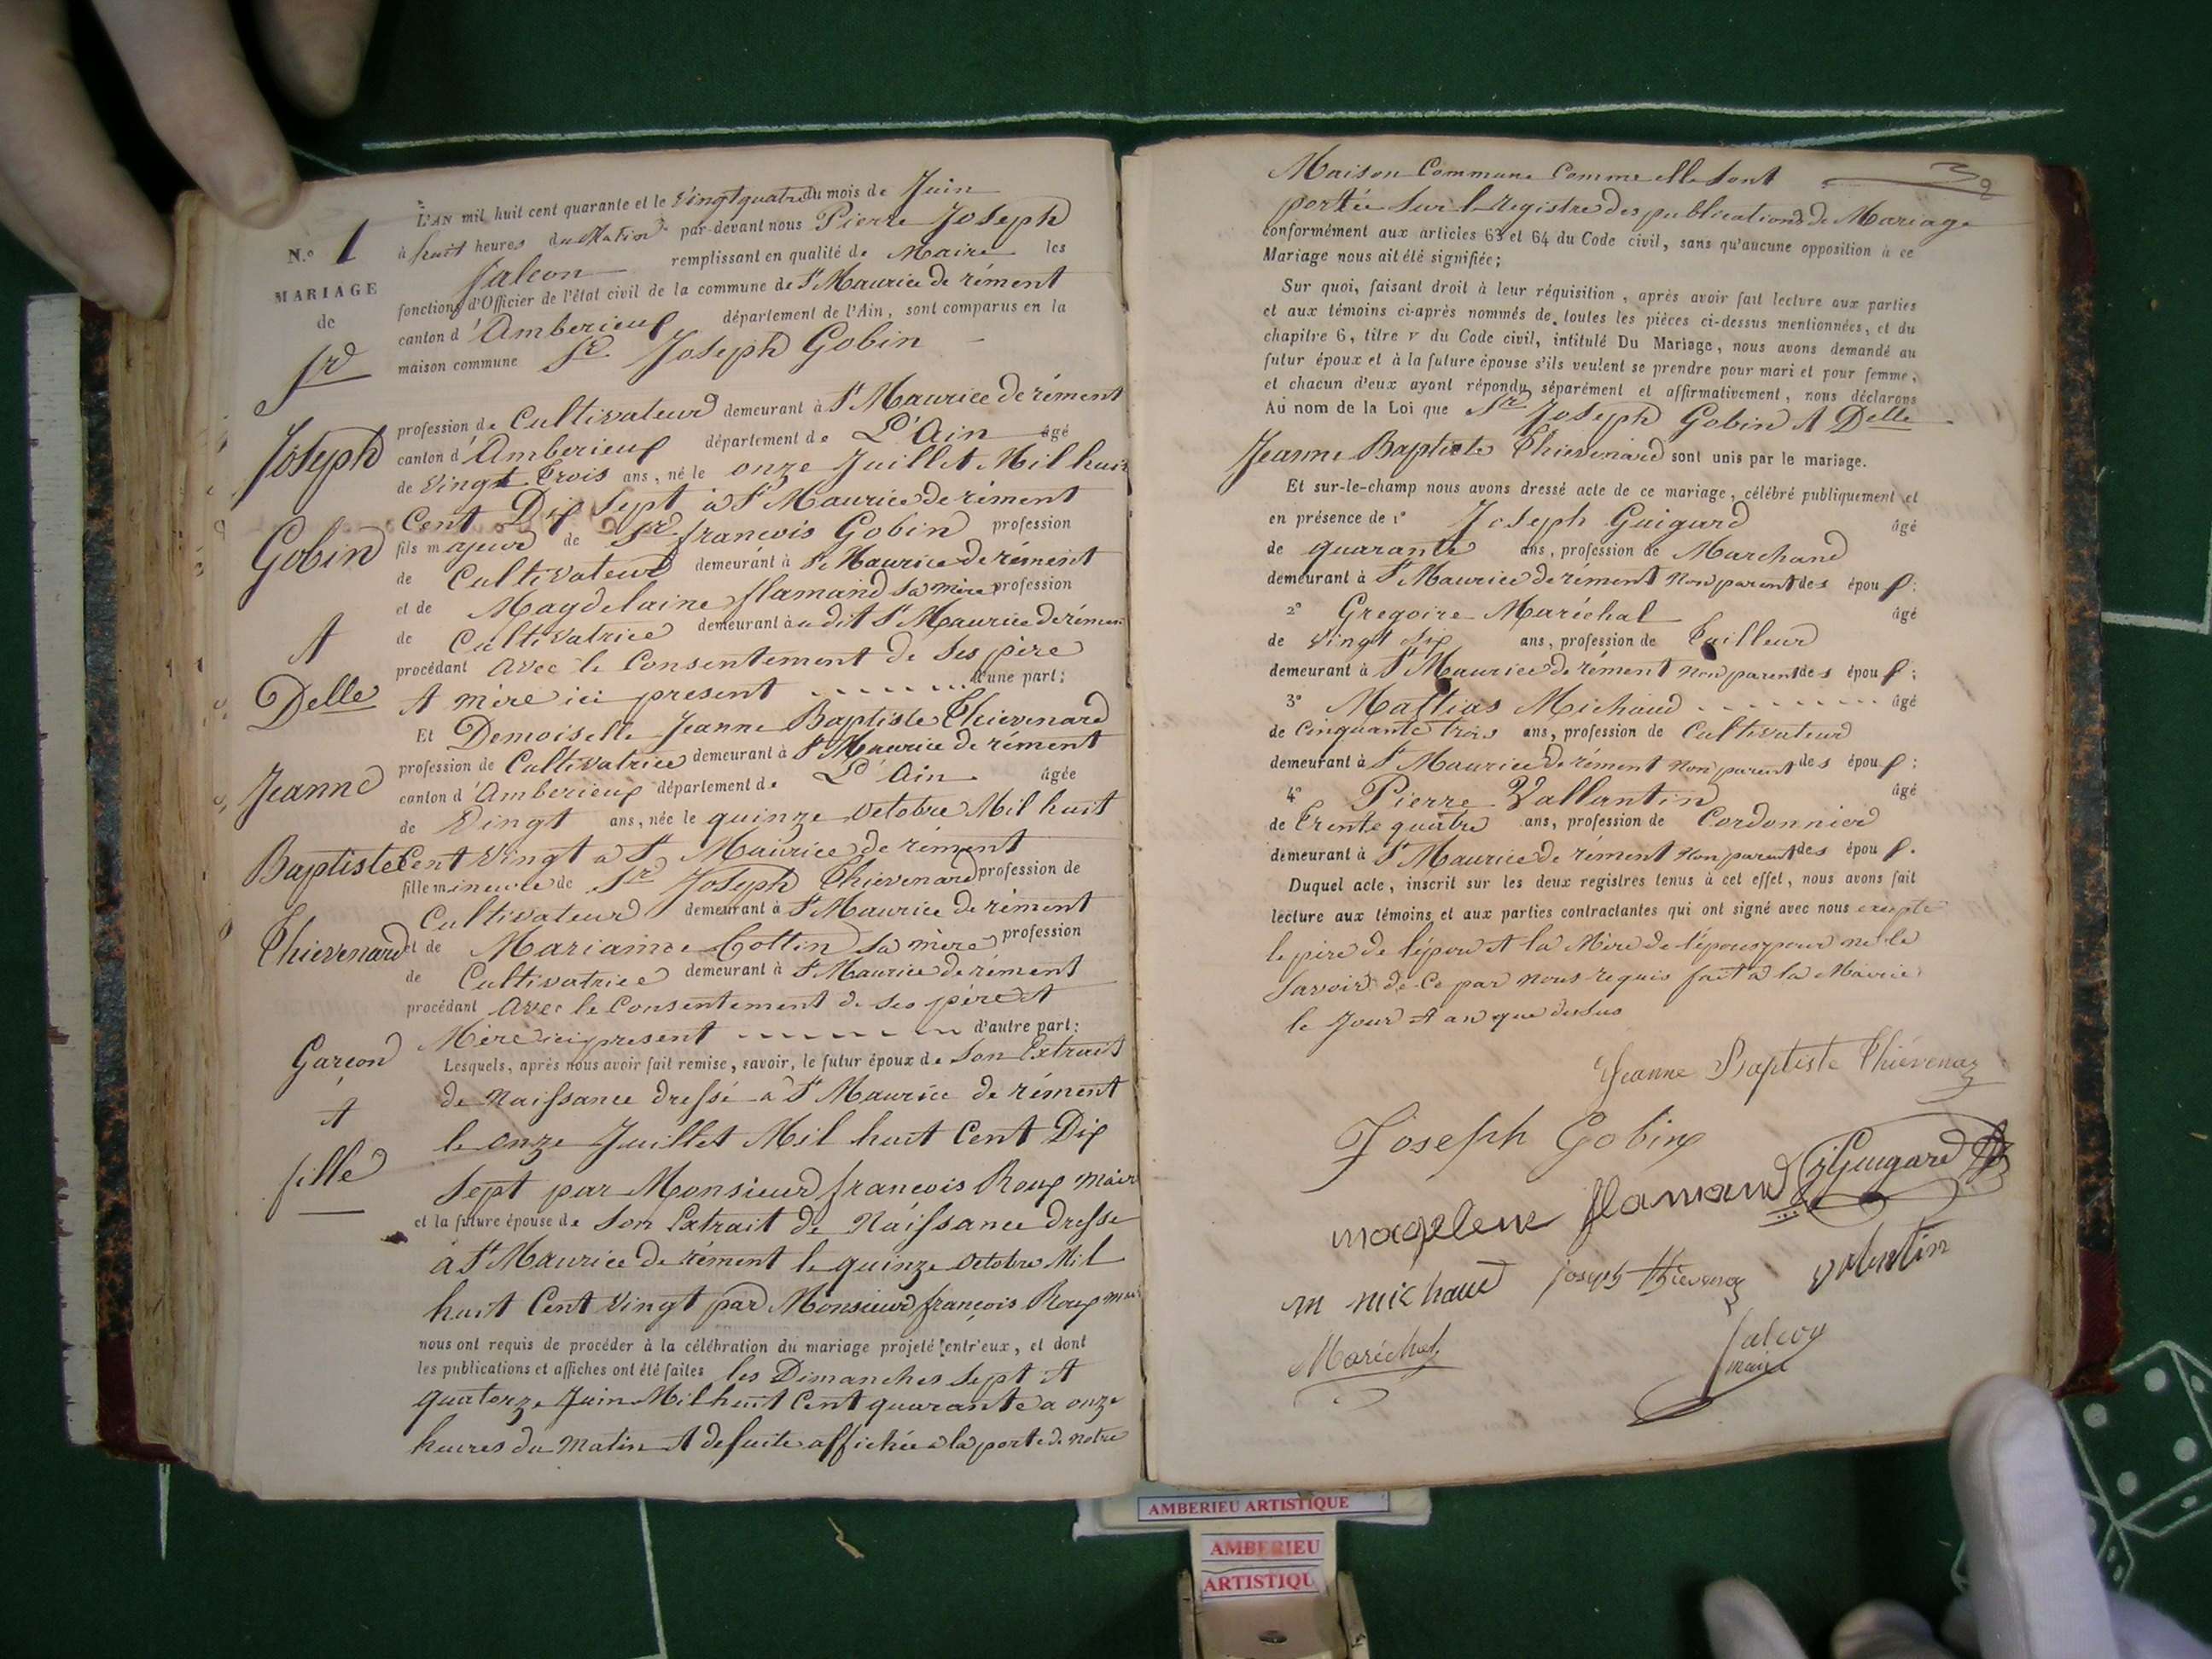 N.° 1
MARIAGE
de
Sr
Joseph
Gobin
A
Delle
Jeanne
Baptiste
Thievenard
Garcon
A
fille
L'AN mil huit cent quarante et le Vingt quatre du mois de Juin
à huit heures du Matin par-devant nous Pierre Joseph
falcon remplissant en qualité de Maire les
fonctions d'Officier de l'état civil de la commune de St Maurice de rément
canton d'Amberieux département de l'Ain, sont comparus en la
maison commune Sr Joseph Gobin
profession de Cultivateur demeurant à St Maurice de rément
canton d'Amberieux département de L'Ain âgé
de Vingt Trois ans, né le onze Juillet Mil huit
Cent Dix Sept à St Maurice de rément
fils majeur de Sr francois Gobin profession
de Cultivateur demeurant à St Maurice de rément
et de Magdelaine flamand sa mère profession
de Cultivatrice demeurant à u dit St Maurice de rément
procédant Avec le Consentement de Ses père
A mère ici present d'une part;
Et Demoiselle Jeanne Baptiste Thievenard
profession de Cultivatrice demeurant à St Maurice de rément
canton d'Amberieux département de L'Ain âgée
de Vingt ans, née le quinze Octobre Mil huit
Cent Vingt a St Maurice de rément
fille mineure de Sr Joseph Thievenard profession de
Cultivateur demeurant à St Maurice de rément
et de Mariainne Cottin sa mère profession
de Cultivatrice demeurant à St Maurice de rément
procédant Avec le Consentement de Ses père A
Mère ici present d'autre part:
Lesquels, après nous avoir fait remise, savoir, le futur époux de Son Extrait
de Naissance dressé à St Maurice de rément
le onze Juillet Mil huit Cent Dix
Sept par Monsieur francois Roux maire
et la future épouse de Son Extrait de Naissance dresse
à St Maurice de rément le quinze Octobre Mil
huit Cent Vingt par Monsieur françois Roux
nous ont requis de procéder à la célébration du mariage projeté entr'eux, et dont
les publications et affiches ont été faites les Dimanches Sept A
quatorze Juin Mil huit Cent quarante a onze
heures du Matin A de suite affichée a la porte de notre
Maison Commune Comme elle sont
portée Sur le registre des publications de Mariage
conformément aux articles 63 et 64 du Code civil, sans qu'aucune opposition à ce
Mariage nous ait été signifiée;
Sur quoi, faisant droit à leur réquisition, après avoir fait lecture aux parties
et aux témoins ci-après nommés de toutes les pièces ci-dessus mentionnées, et du
chapitre 6, titre V du Code civil, intitulé Du Mariage, nous avons demandé au
futur époux et à la future épouse s'ils veulent se prendre pour mari et pour femme;
et chacun d'eux ayant répondu séparément et affirmativement, nous déclarons
Au nom de la Loi que Sr Joseph Gobin A Delle
Jeanne Baptiste Thievenard sont unis par le mariage.
Et sur-le-champ nous avons dressé acte de ce mariage, célébré publiquement et
en présence de 1° Joseph Guigard âgé
de quarante ans, profession de Marchand
demeurant à St Maurice de rément Non parent des époux;
2° Gregoire Maréchal âgé
de Vingt six ans, profession de Tailleur
demeurant à St Maurice de rément Non parent des époux;
3° Mattias Michaud âgé
de Cinquante trois ans, profession de Cultivateur
demeurant à St Maurice de rément Non parent des époux;
4° Pierre Vallantin âgé
de Trente quatre ans, profession de Cordonnier
demeurant à St Maurice de rément Non parent des époux.
Duquel acte, inscrit sur les deux registres tenus à cet effet, nous avons fait
lecture aux témoins et aux parties contractantes qui ont signé avec nous excepté
le père de l'époux A la Mère de l'épouse pour ne le
Savoir de Ce par nous requis fait a la Mairie
le Jour A an que dessus
Jeanne Baptiste Thiévenaz
Joseph Gobin
Guigard
magelene flamand
m michaud joseph thievenaz valentin
Maréchal
falcon
maire
AMBERIEU ARTISTIQUE
AMBERIEU
ARTISTIQU